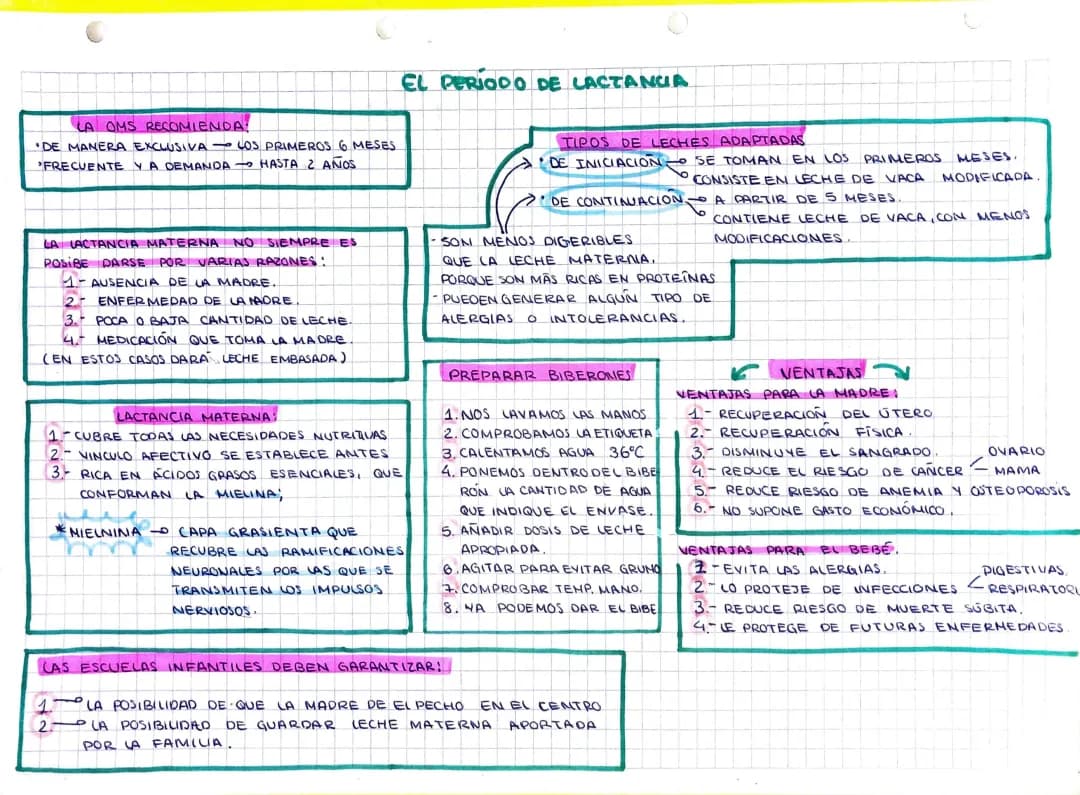 EL PERÍODO DE LACTANCIA
LA OMS RECOMIENDA:
·DE MANERA EXCLUSIVA → LOS PRIMEROS 6 MESES
·FRECUENTE Y A DEMANDA → HASTA 2 AÑOS
LA LACTANCIA MATERNA NO SIEMPRE ES
POSIBE DARSE POR VARIAS RAZONES:
1.- AUSENCIA DE LA MADRE.
2- ENFERMEDAD DE LA MADRE.
3.- POCA O BAJA CANTIDAD DE LECHE.
4.- MEDICACIÓN QUE TOMA LA MADRE.
(EN ESTOS CASOS DARÁ LECHE EMBASADA)
LACTANCIA MATERNA:
1- CUBRE TODAS LAS NECESIDADES NUTRITIVAS
2- VINCULO AFECTIVO SE ESTABLECE ANTES
3.- RICA EN ÁCIDOS GRASOS ESENCIALES, QUE
CONFORMAN LA MIELINA;
*MIELNINA → CAPA GRASIENTA QUE
RECUBRE LAS RAMIFICACIONES
NEURONALES POR LAS QUE SE
TRANSMITEN LOS IMPULSOS
NERVIOSOS.
TIPOS DE LECHES ADAPTADAS
· DE INICIACIÓN → SE TOMAN EN LOS PRIMEROS MESES.
CONSISTE EN LECHE DE VACA MODIFICADA.
· DE CONTINUACIÓN → A PARTIR DE 5 MESES.
CONTIENE LECHE DE VACA, CON MENOS
MODIFICACIONES.
- SON MENOS DIGERIBLES
QUE LA LECHE MATERNA,
PORQUE SON MÁS RICAS EN PROTEÍNAS
- PUEDEN GENERAR ALGÚN TIPO DE
ALERGIAS O INTOLERANCIAS.
PREPARAR BIBERONES
1. NOS LAVAMOS LAS MANOS
2. COMPROBAMOS LA ETIQUETA
3. CALENTAMOS AGUA 36ºC
4. PONEMOS DENTRO DEL BIBE
RÓN LA CANTIDAD DE AGUA
QUE INDIQUE EL ENVASE.
5. AÑADIR DOSIS DE LECHE
APROPIADA.
6. AGITAR PARA EVITAR GRUMO
7. COMPROBAR TEMP. MANO.
8. YA PODEMOS DAR EL BIBE
VENTAJAS
VENTAJAS PARA LA MADRE:
1.- RECUPERACIÓN DEL ÚTERO
2.- RECUPERACIÓN FÍSICA.
3.- DISMINUYE EL SANGRADO.
4.- REDUCE EL RIESGO DE CAÑCER
OVARIO
MAMA
5.- REDUCE RIESGO DE ANEMIA Y OSTEOPOROSIS
6.- NO SUPONE GASTO ECONÓMICO.
VENTAJAS PARA EL BEBÉ.
1 - EVITA LAS ALERGIAS.
2 - LO PROTEJE DE INFECCIONES
DIGESTIVAS.
RESPIRATORI
3.- REDUCE RIESGO DE MUERTE SÚBITA.
4.- LE PROTEGE DE FUTURAS ENFERMEDADES.
LAS ESCUELAS INFANTILES DEBEN GARANTIZAR:
1 → LA POSIBILIDAD DE QUE LA MADRE DE EL PECHO EN EL CENTRO
2. → LA POSIBILIDAD DE GUARDAR LECHE MATERNA APORTADA
POR LA FAMILIA.